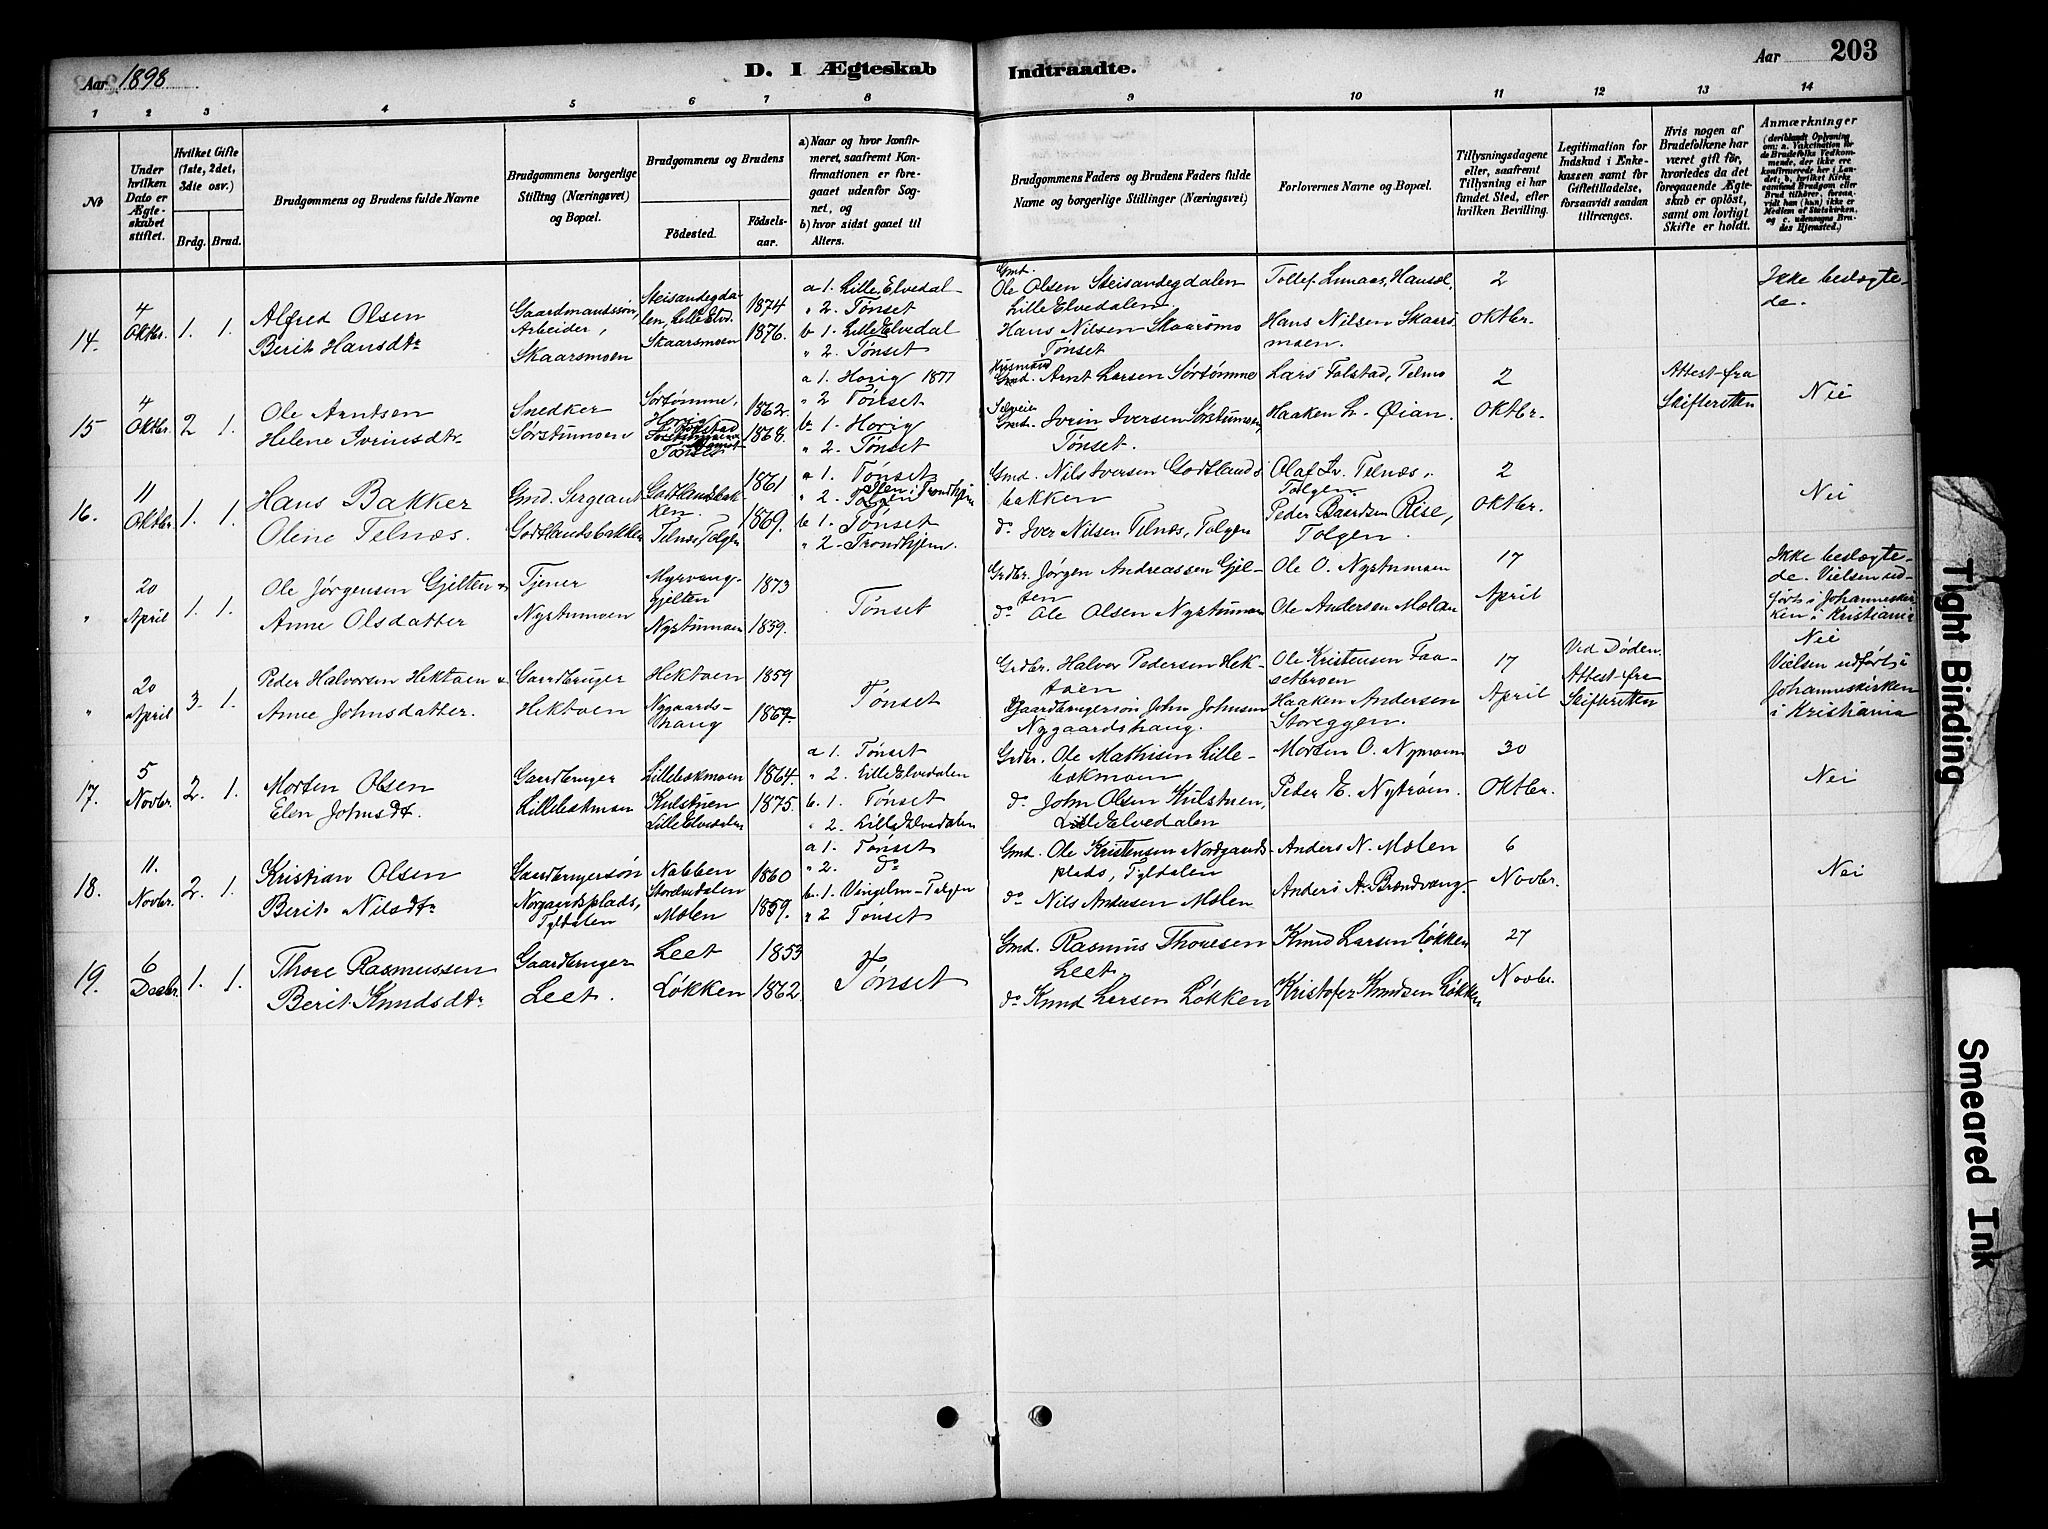 Aar 1898
D. I Ægteskab
Indtraadte.
Aar
203
1
2
3
4
5
6
7
8
9
10
11
12
13
14
No
Under hvilken Dato er Ægteskabet stiftet.
Hvilket Gifte (1ste, 2det, 3die osv.)
Brdg.
Brud.
Brudgommens og Brudens fulde Navne
Brudgommens borgerlige Stilling (Næringsvei) og Bopæl.
Brudgommens og Brudens
Födested.
Födsels-aar.
a) Naar og hvor konfirmeret, saafremt Konfirmationen er foregaaet udenfor Sognet, og
b) hvor sidst gaaet til Alters.
Brudgommens Faders og Brudens Faders fulde Navne og borgerlige Stillinger (Næringsvei)
Forlovernes Navne og Bopæl.
Tillysningsdagene eller, saafremt Tillysning ei har fundet Sted, efter hvilken Bevilling.
Legitimation for Indskud i Enkekassen samt for Giftetilladelse, forsaavidt saadan tiltrænges.
Hvis nogen af Brudefolkene har været gift för, hvorledes da det foregaaende Ægteskab er oplöst, samt om lovligt Skifte er holdt.
Anmærkninger
(deriblandt Oplysning om: a. Vakcination for de Brudefolks Vedkommende, der ikke ere konfirmerede her i Landet; b. hvilket Kirkesamfund Brudgom eller Brud tilhörer, forsaavidt han (hun) ikke er Medlem af Statskirken, og c. udensogns Brudes Hjemsted.)
14.
4
Oktbr.
1.
1.
Alfred Olsen
Berit Hansdtr
Gaardmandssøn,
Arbeider,
Skaarsmoen
Steisandegda-
len, Lille Elvd.
Skaarsmoen
1874
1876.
a 1. Lille Elvedal
" 2. Tønset
b 1. Lille Elvedal
" 2. Tønset
Gmd.
Ole Olsen Steisandegdalen
Lille Elvedalen.
Hans Nilsen Skaarsmo
Tønset
Hans Nilsen Skaars
moen.
2
Oktbr.
Ikke beslægte-
de.
15
4
Oktbr.
2
1.
Ole Arntsen
Helene Ivrinsdtr.
Snedker
Sørstumoen
Sørtømme,
1862.
1868.
a 1. Horig 1877
" 2 Tønset
b 1. Horig
" 2. Tønset
Husmand
Gmd. Arnt Larsen Sørtømme
Selveier
Gmd. Ivrin Iversen Sørstumoen,
Tønset.
Lars Tolstad, Telmo
Haaken L. Øian.
2
Oktbr.
Attest fra
Skifteretten
Nei
16.
11
Oktbr.
1.
1.
Hans Bakker
Oline Telnæs.
Gmd. Sergeant
Godtlandsbakken
Godtlandsbak-
ken.
Telnæs, Tolgen
1861
1869.
a 1. Tønset
b 1. Tønset
" 2. Trondhjem.
Gmd. Nils Iversen Godtlands
bakken
do Iver Nilsen Telnæs, Tolgen
Olaf Iv. Telnæs,
Tolgen.
Peder Baardsen Rise,
Tolgen.
2
Oktbr.
Nei
"
20
April
1.
1.
Ole Jørgensen Gjelten &
Anne Olsdatter
Tjener
Nystumoen
Myrvang
Gjelten
Nystumoen
1873
1859.
Tønset
Grdbr. Jørgen Andreassen Gjel-
ten
do Ole Olsen Nystumoen
Ole O. Nystumoen
Ole Andersen Molan
17
April
Ikke beslægte-
de. Vielsen ud-
ført i Johanneskir
ken i Kristiania
"
20
April
3.
1.
Peder Halvorsen Hektoen &
Anne Johnsdatter.
Gaardbruger
Hektoen
Hektoen
Nygaards-
haug
1859
1869
Tønset
Grdbr. Halvor Pedersen Hek-
toen
Gaardbrugersøn John Johnsen
Nygaardshaug.
Ole Kristensen Faa-
setbroen
Haaken Andersen
Storeggen.
17
April
Ved Døden.
Attest fra
Skifteretten
Nei
Vielsen udført i
Johanneskirken
i Kristiania
17.
5
Novbr.
2.
1.
Morten Olsen
Elen Johnsdt.
Gaardbruger
Lillebakmoen
Lillebakmoen
Kulstuen
Lille Elvedalen
1864.
1875.
a 1. Tønset
" 2. Lille Elvedalen
b. 1. Tønset
" 2. Lille Elvedalen
Grdbr. Ole Mathisen Lille-
bakmoen
do John Olsen Kulstuen,
Lille Elvedalen
Morten O. Nymoen
Peder E. Nytrøen.
30
Oktbr.
Nei
18.
11.
Novbr.
2.
1.
Kristian Olsen
Berit Nilsdtr
Gaardbrugersøn
Norgaardsplads,
Tyldalen
Nabben
Storelvedalen
Molen
1860
1859.
a 1. Tønset
" 2. do
b. 1. Vingeln-Tolgen
" 2 Tønset
Gmd. Ole Kristensen Nordgaards-
plads, Tyldalen
do Nils Andersen Molen
Anders N. Molen
Anders A. Brændvang.
6
Novbr.
Nei
19.
6
Decbr.
1.
1.
Thore Rasmussen
Berit Knudsdtr
Gaardbruger
Leet.
Leet
Løkken
1853
1862.
Tønset
Gmd. Rasmus Thoresen
Leet
do Knud Larsen Løkken
Knud Larsen Løkken
Kristofer Knudsen Løkken
27
Novbr.
Tight Binding
Smeared Ink